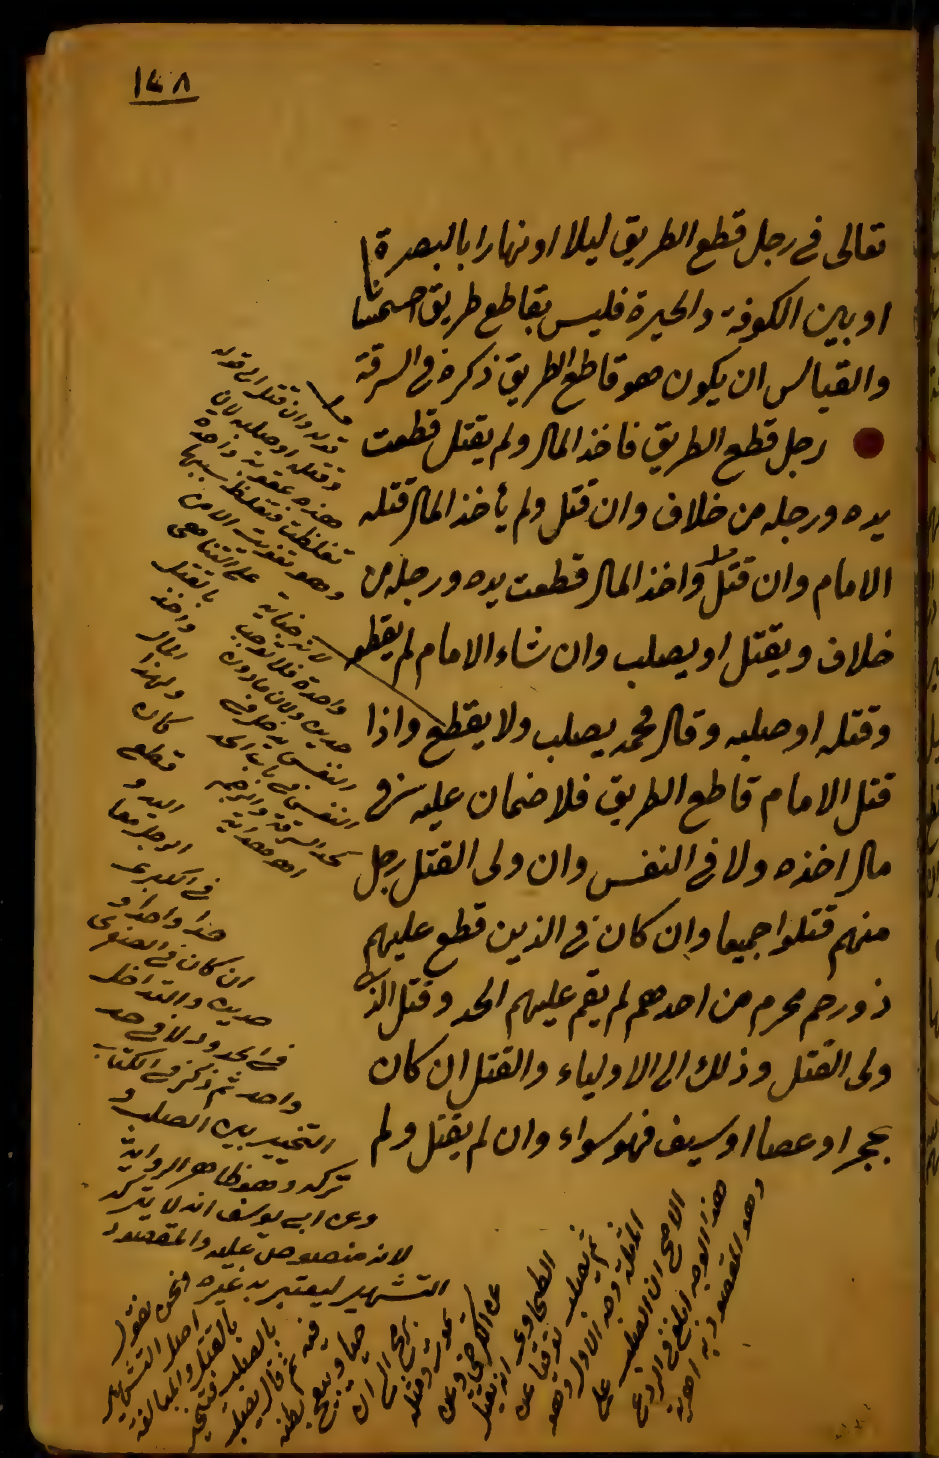 ١٤٨
تعالى في رجل قطع الطريق ليلا او نهارا بالبصرة
او بين الكوفة والحيرة فليس بقاطع طريق استحسانا
والقياس ان يكون هو قاطع الطريق ذكره في السرقة
رجل قطع الطريق فاخذ المال ولم يقتل قطعت
يده ورجله من خلاف وان قتل ولم يأخذ المال قتله
الامام وان قتل واخذ المال قطعت يده ورجله من
خلاف ويقتل او يصلب وان شاء الامام لم يقطع
وقتله او صلبه وقال محمد يصلب ولا يقطع واذا
قتل الامام قاطع الطريق فلا ضمان عليه في
مال اخذه ولا في النفس وان ولى القتل رجل
منهم قتلوا جميعا وان كان في الذين قطع عليهم
ذو رحم محرم من احدهم لم يقم عليهم الحد وقتل الذي
ولى القتل وذلك الى الاولياء والقتل ان كان
بحجر او عصا او سيف فهو سواء وان لم يقتل ولم
قوله وان قتل الى قوله
وقتله او صلبه لان
هذه عقوبة واحدة
تغلظت فتغلظ سببها
وهو تفويت الامن
على التناهي
بالقتل
واخذ
المال
ولهذا
كان
قطع
اليد و
الرجل معا
في الكبرى
حدا واحدا و
ان كان في الصغرى
حدين والتداخل
في الحدود لا في حد
واحد ثم ذكر في الكتاب
التخيير بين الصلب و
تركه وهو ظاهر الرواية
وعن ابي يوسف انه لا يتركه
لانه منصوص عليه والمقصود
التشهير ليعتبر به غيره ونحن نقول
اصل التشهير
بالقتل والمبالغة
بالصلب فيتخير
فيه ثم قال يصلب
حيا ويبعج بطنه
برمح الى ان
يموت ومثله
عن الكرخي وعن
الطحاوي انه يقتل
ثم يصلب توقيا عن
المثلة وجه الاول وهو
الاصح ان الصلب على
هذا الوجه ابلغ في الردع
وهو المقصود به اهـ
لانه جناية
واحدة فلا توجب
حدين ولان ما دون
النفس يدخل في
النفس في باب الحد
كحد السرقة والرجم
اهـ هداية